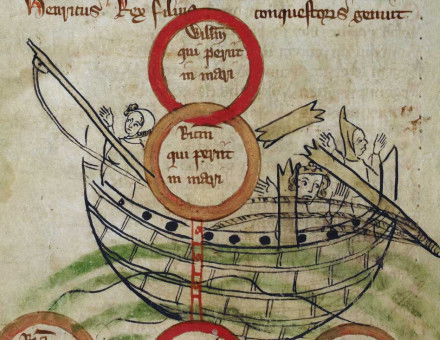 Henricus Rex filius conquestoris genuit
Willm
qui periit
in mari
qui periit
in mari